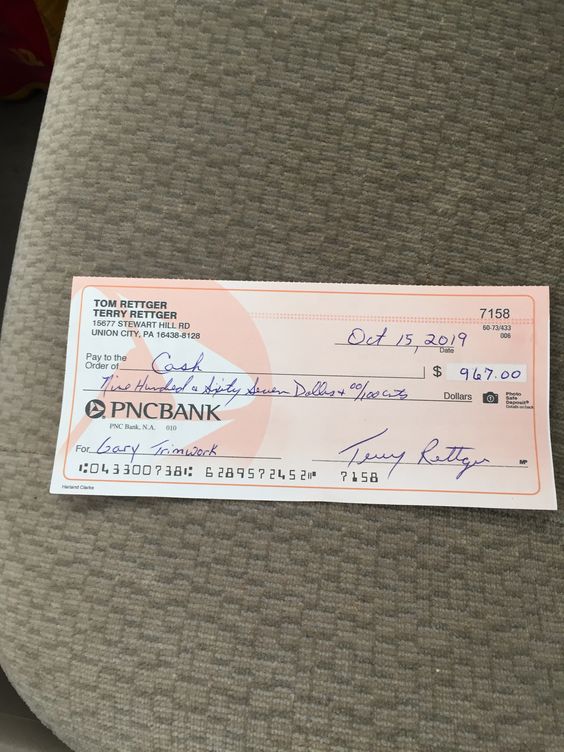 TOM RETTGER
TERRY RETTGER
15677 STEWART HILL RD
UNION CITY, PA 16438-8128
7158
60-73/433
006
Oct 15, 2019
Date
Pay to the
Order of Cash $ 967.00
Nine Hundred & Sixty Seven Dollars + 00/100 cuts Dollars
Photo
Safe
Deposit®
Details on back
PNCBANK
PNC Bank, N.A. 010
For Gary Trimwork Terry Rettger MP
⑆043300738⑆ 6289572452⑈ 7158
Harland Clarke